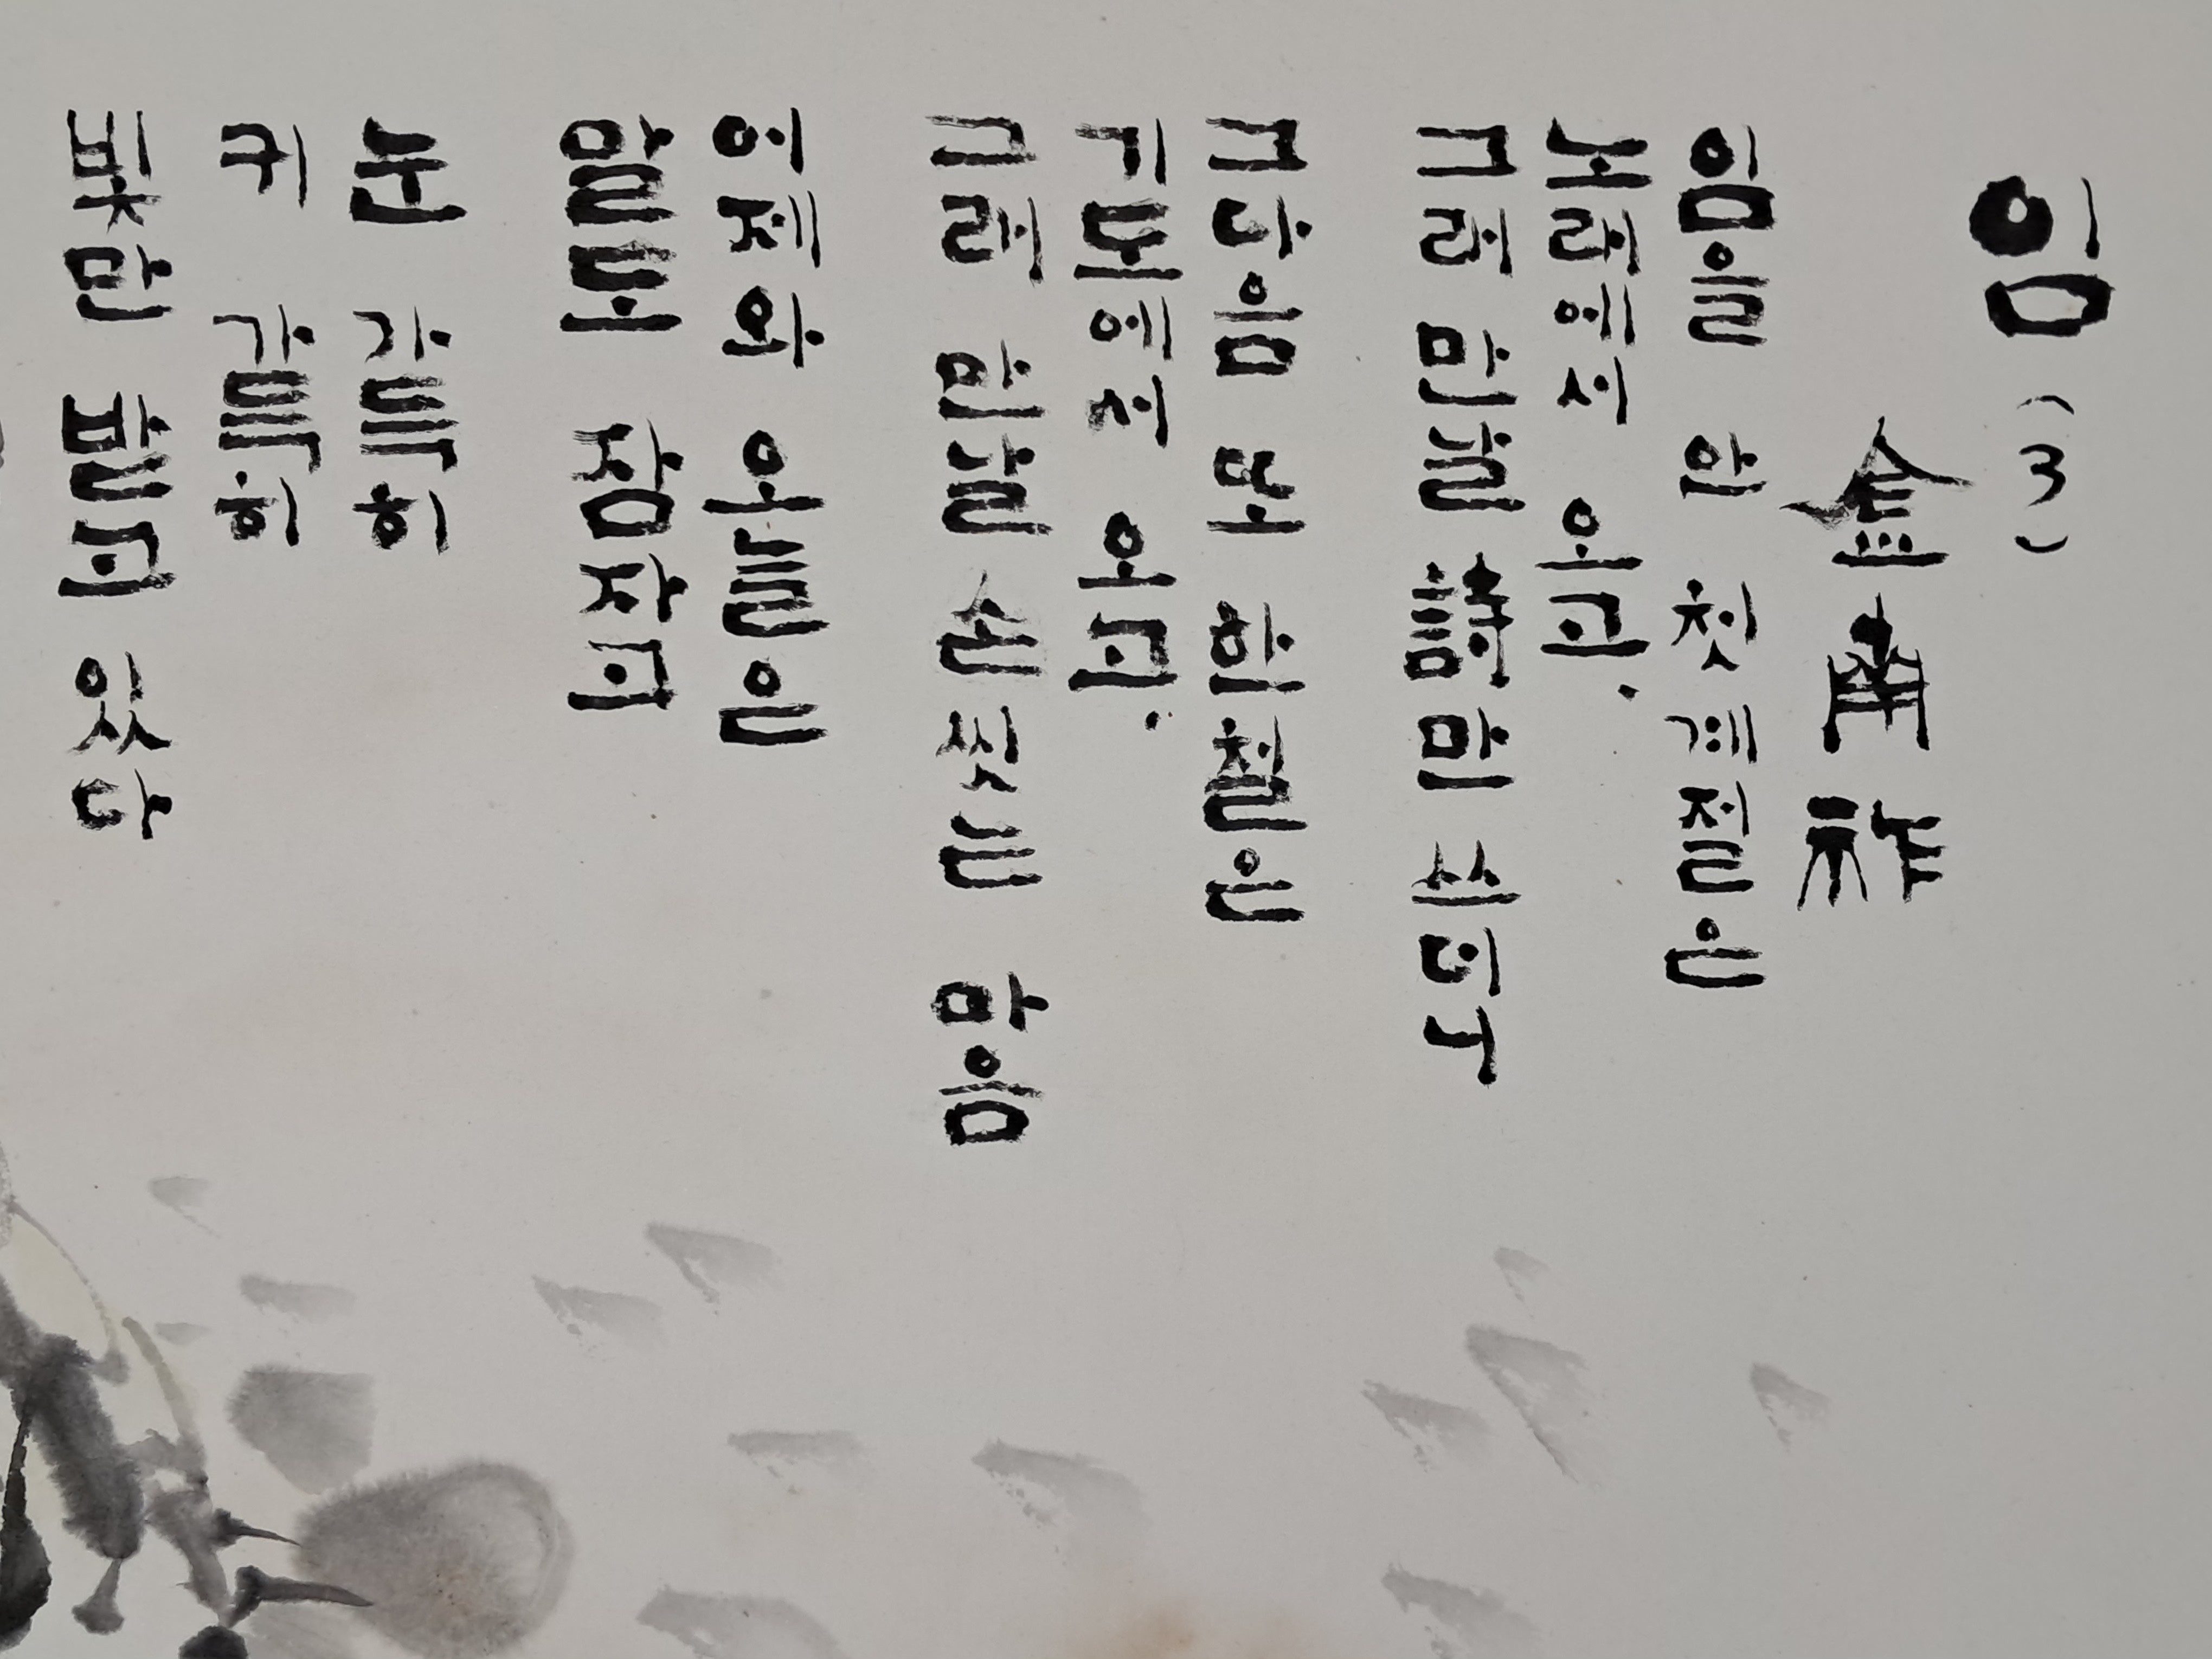 임 (3)
金南祚
임을 안 첫 계절은
노래에서 오고.
그래 만날 詩만 쓰더니
그다음 또 한철은
기도에서 오고.
그래 만날 손 씻는 마음
어제와 오늘은
말도 잠자고
눈 가득히
귀 가득히
빛만 받고 있다